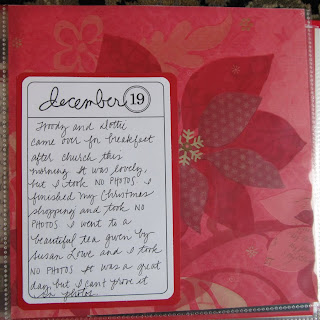 december 19
Woody and Dottie
came over for breakfast
after church this
morning It was lovely,
but I took NO PHOTOS I
finished my Christmas
shopping and took NO
PHOTOS I went to a
beautiful tea given by
Susan Love and I took
NO PHOTOS It was a great
day, but I can't prove it
in photos